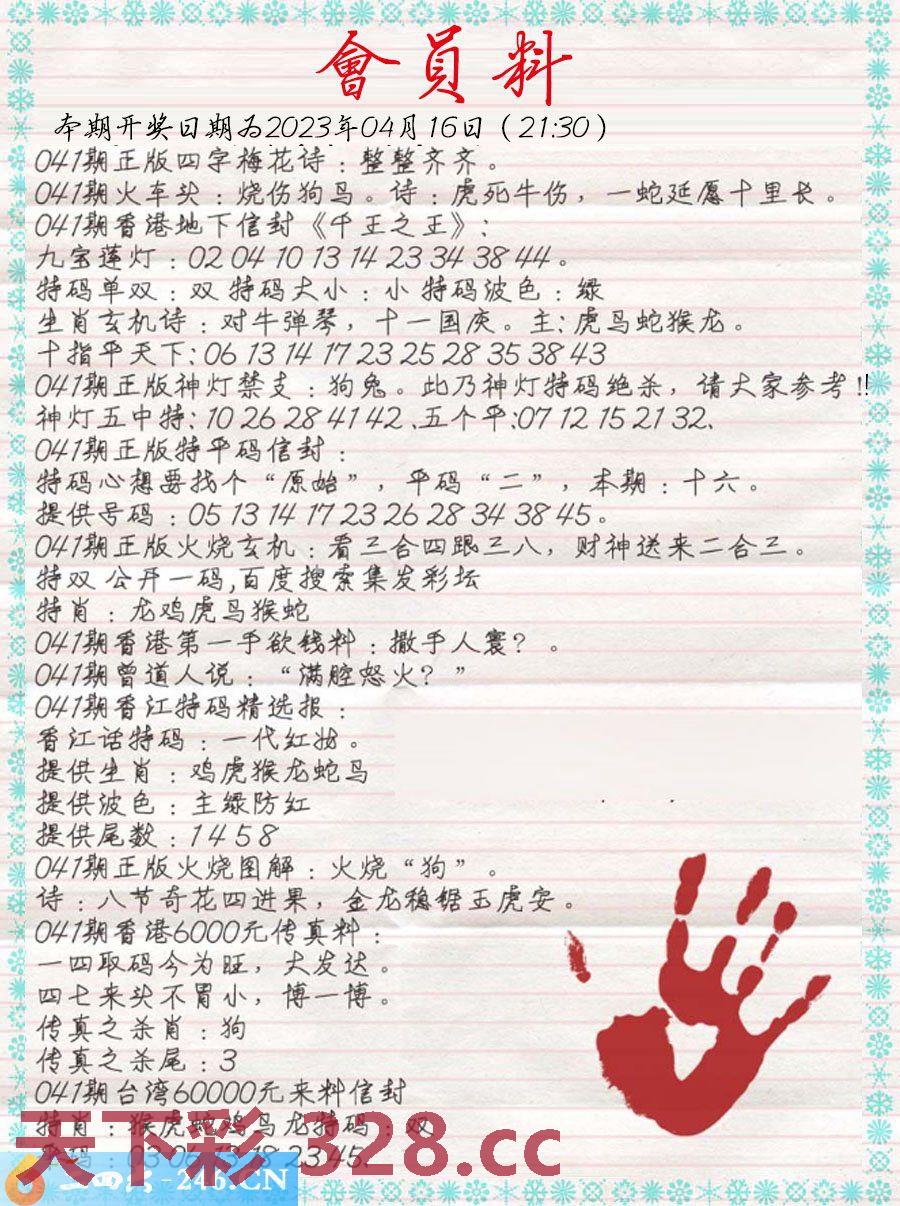 會員料
本期开奖日期为2023年04月16日（21:30）
041期正版四字梅花诗：整整齐齐。
041期火车头：烧伤狗鸟。诗：虎死牛伤，一蛇延愿十里长。
041期香港地下信封《千王之王》：
九宝莲灯：02 04 10 13 14 23 34 38 44。
特码单双：双 特码大小：小 特码波色：绿
生肖玄机诗：对牛弹琴，十一国庆。主：虎鸟蛇猴龙。
十指平天下：06 13 14 17 23 25 28 35 38 43
041期正版神灯禁支：狗兔。此乃神灯特码绝杀，请大家参考!!
神灯五中特：10 26 28 41 42、五个平：07 12 15 21 32、
041期正版特平码信封：
特码心想要找个“原始”，平码“二”，本期：十六。
提供号码：05 13 14 17 23 26 28 34 38 45。
041期正版火烧玄机：看三合四跟三八，财神送来二合三。
特双 公开一码,百度搜索集发彩坛
特肖：龙鸡虎鸟猴蛇
041期香港第一手欲钱料：撒手人寰？。
041期曾道人说：“满腔怒火？”
041期香江特码精选报：
香江话特码：一代红妆。
提供生肖：鸡虎猴龙蛇鸟
提供波色：主绿防红
提供尾数：1 4 5 8
041期正版火烧图解：火烧“狗”。
诗：八节奇花四进果，金龙稳锯玉虎安。
041期香港6000元传真料：
一四取码今为旺，大发达。
四七来头不胃小，博一博。
传真之杀肖：狗
传真之杀尾：3
041期台湾60000元来料信封
特肖：猴虎蛇鸡鸟龙特码：双
平码：03 06 13 18 23 45、
天下彩 328.cc
二四六-246.CN